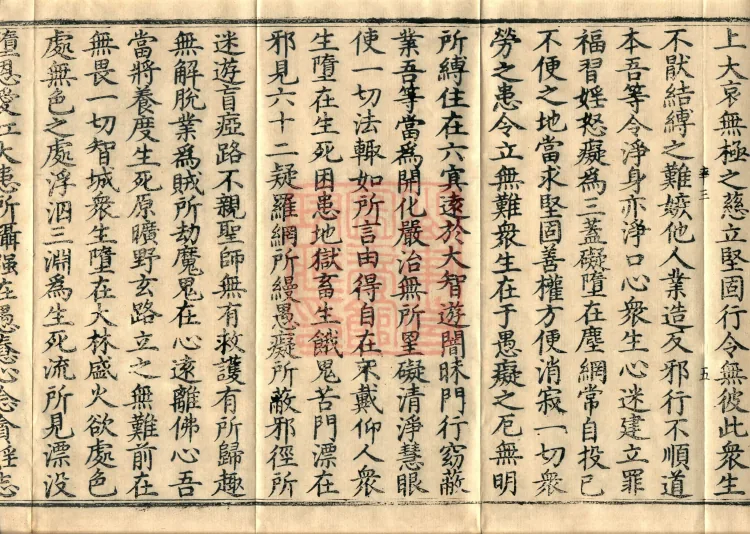 上大哀無極之慈立堅固行令無彼此衆生
不猒結縛之難嫉他人業造反邪行不順道
本吾等令淨身亦淨口心衆生心迷建立罪
福習婬怒癡為三蓋礙墮在塵網常自投已
不便之地當求堅固善權方便消寂一切衆
勞之患令立無難衆生在于愚癡之厄無明
所縛住在六冥遠於大智遊闇昧門行窈蔽
業吾等當為開化嚴治無所罣礙清淨慧眼
使一切法輙如所言由得自在不戴仰人衆
生墮在生死困患地獄畜生餓鬼苦門漂在
邪見六十二疑羅網所縵愚癡所蔽邪徑所
迷遊盲瘂路不親聖師無有救護有所歸趣
無解脫業為賊所劫魔鬼在心遠離佛心吾
當將養度生死原曠野玄路立之無難前在
無畏一切智城衆生墮在大林盛火欲處色
處無色之處浮泗三淵為生死流所見漂没
墮恩愛江大患所攝强在愚癡心念貪婬志